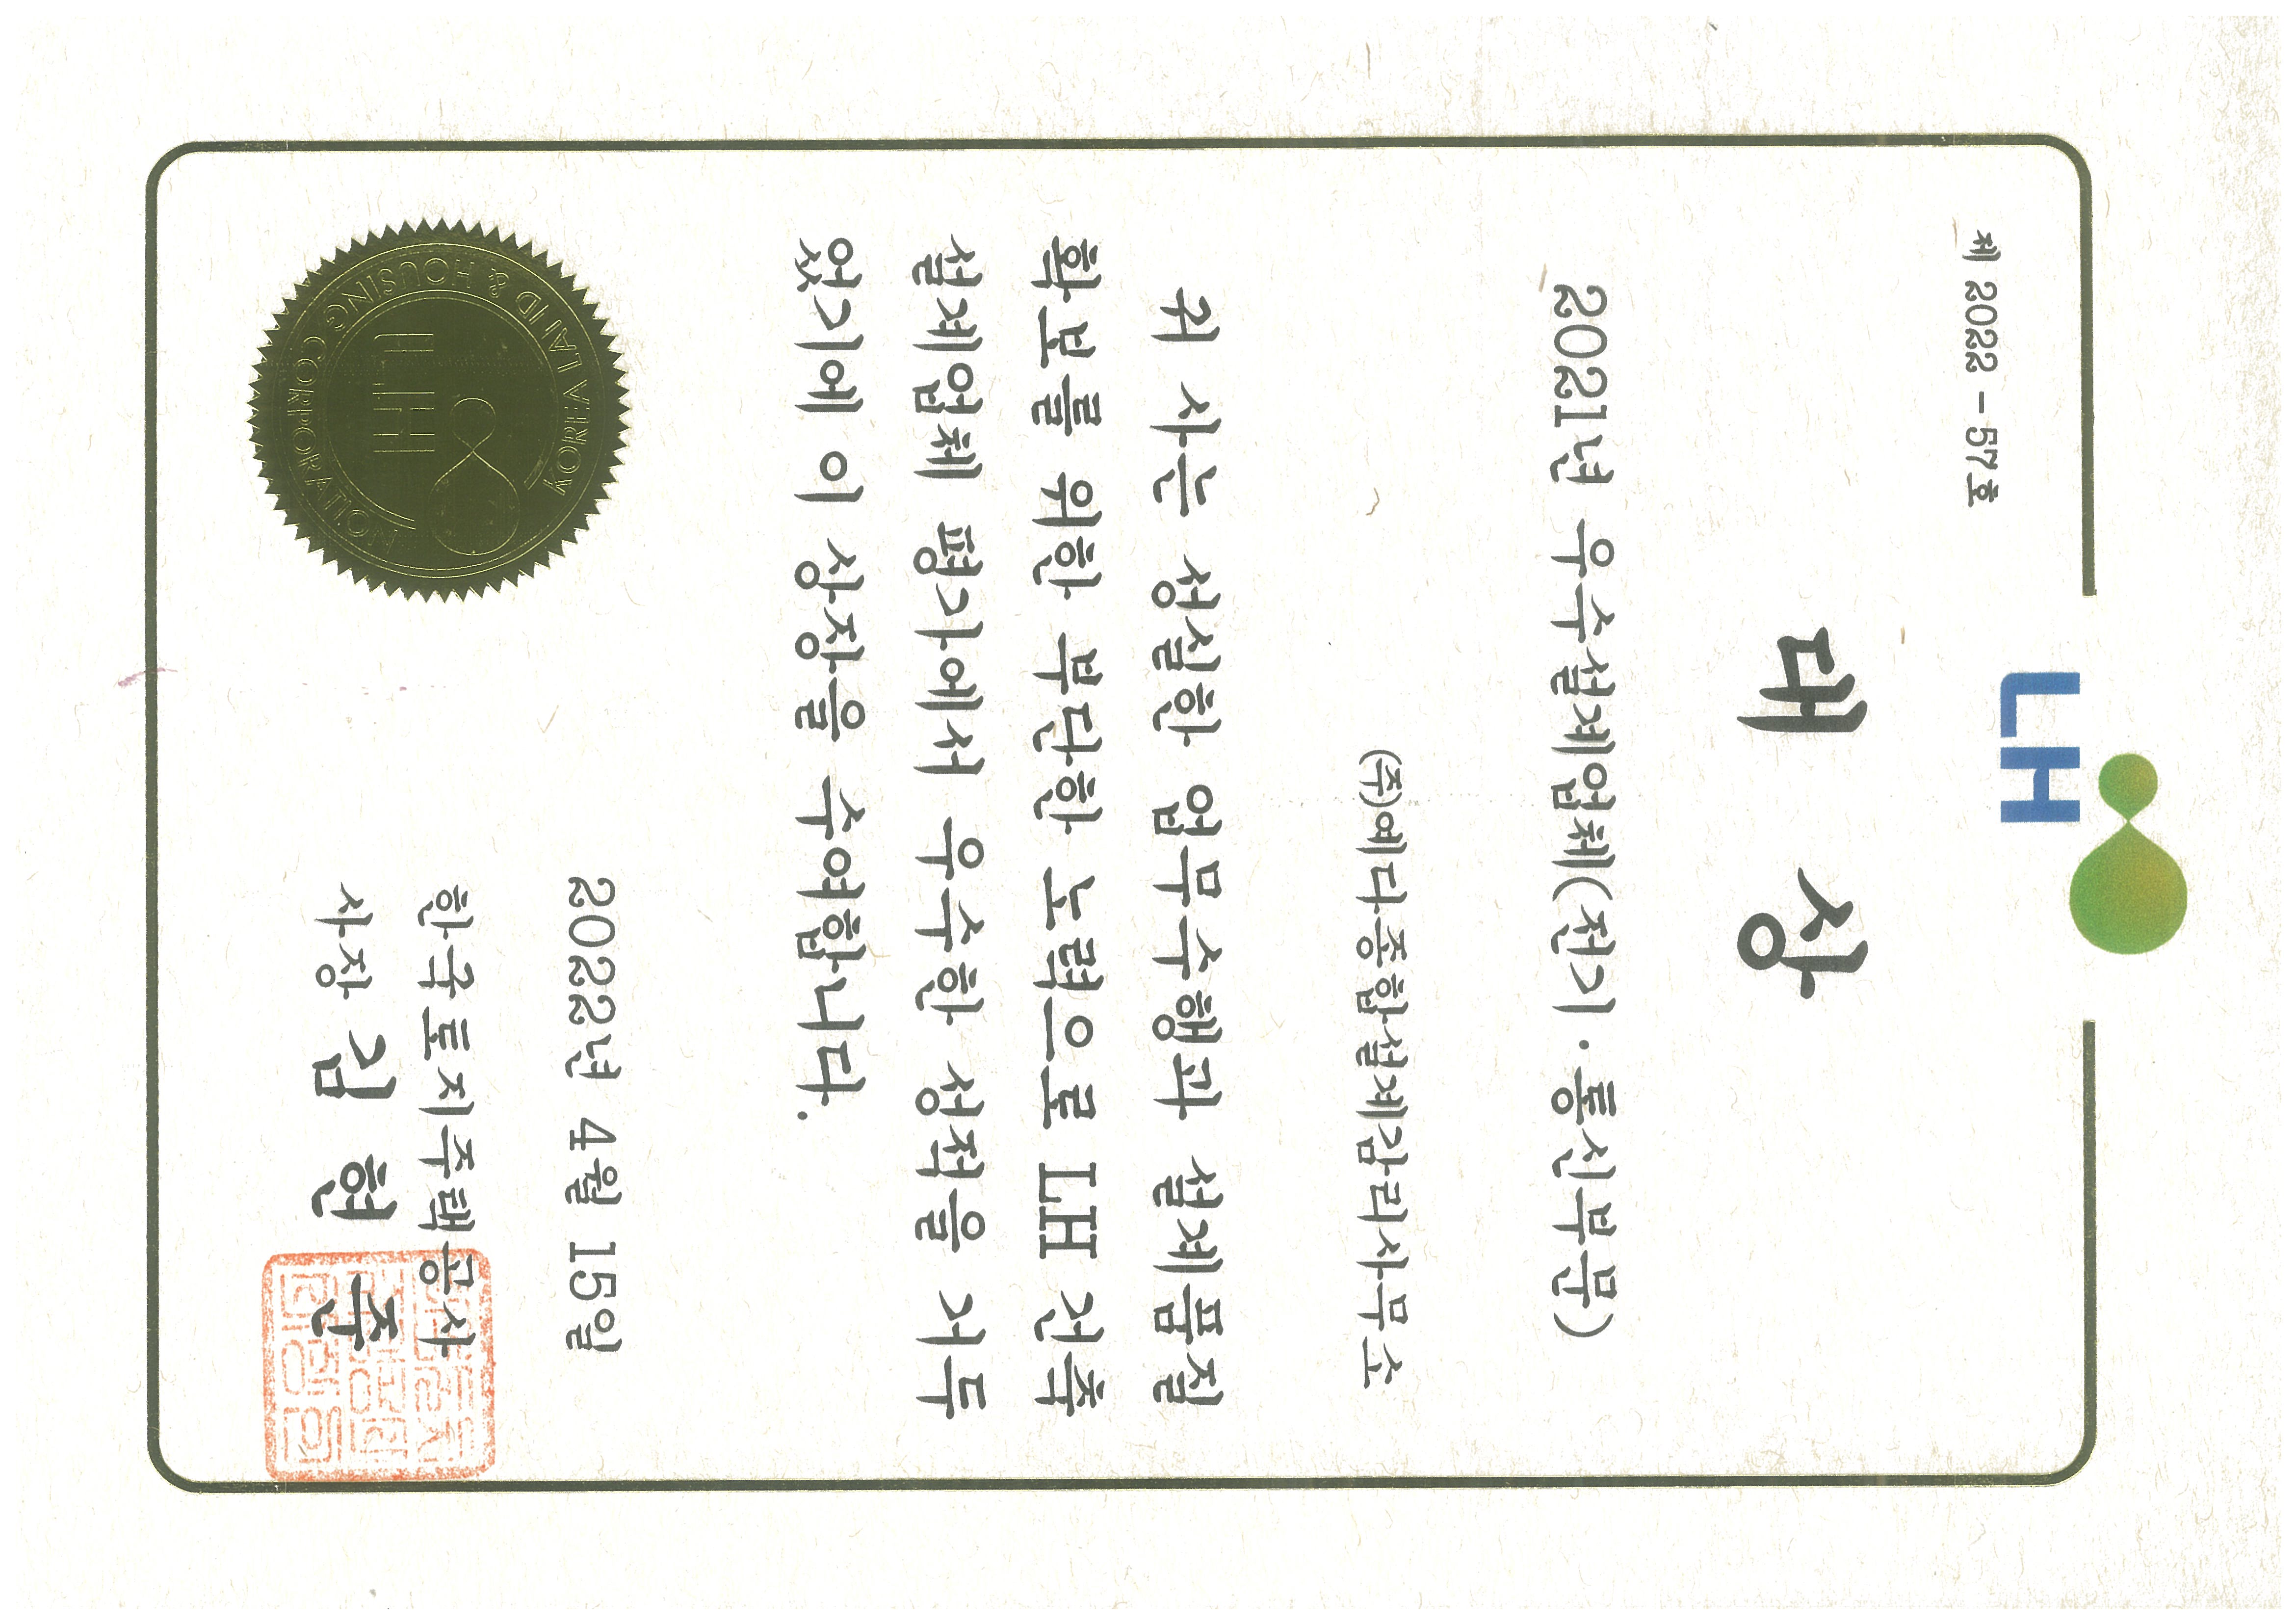 제 2022 - 57호
LH
대 상
2021년 우수설계업체(전기·통신부문)
(주)예다종합설계감리사무소
귀 사는 성실한 업무수행과 설계품질
확보를 위한 부단한 노력으로 LH 건축
설계업체 평가에서 우수한 성적을 거두
었기에 이 상장을 수여합니다.
2022년 4월 15일
한국토지주택공사
사장 김 현 준
KOREA LAND & HOUSING CORPORATION
LH